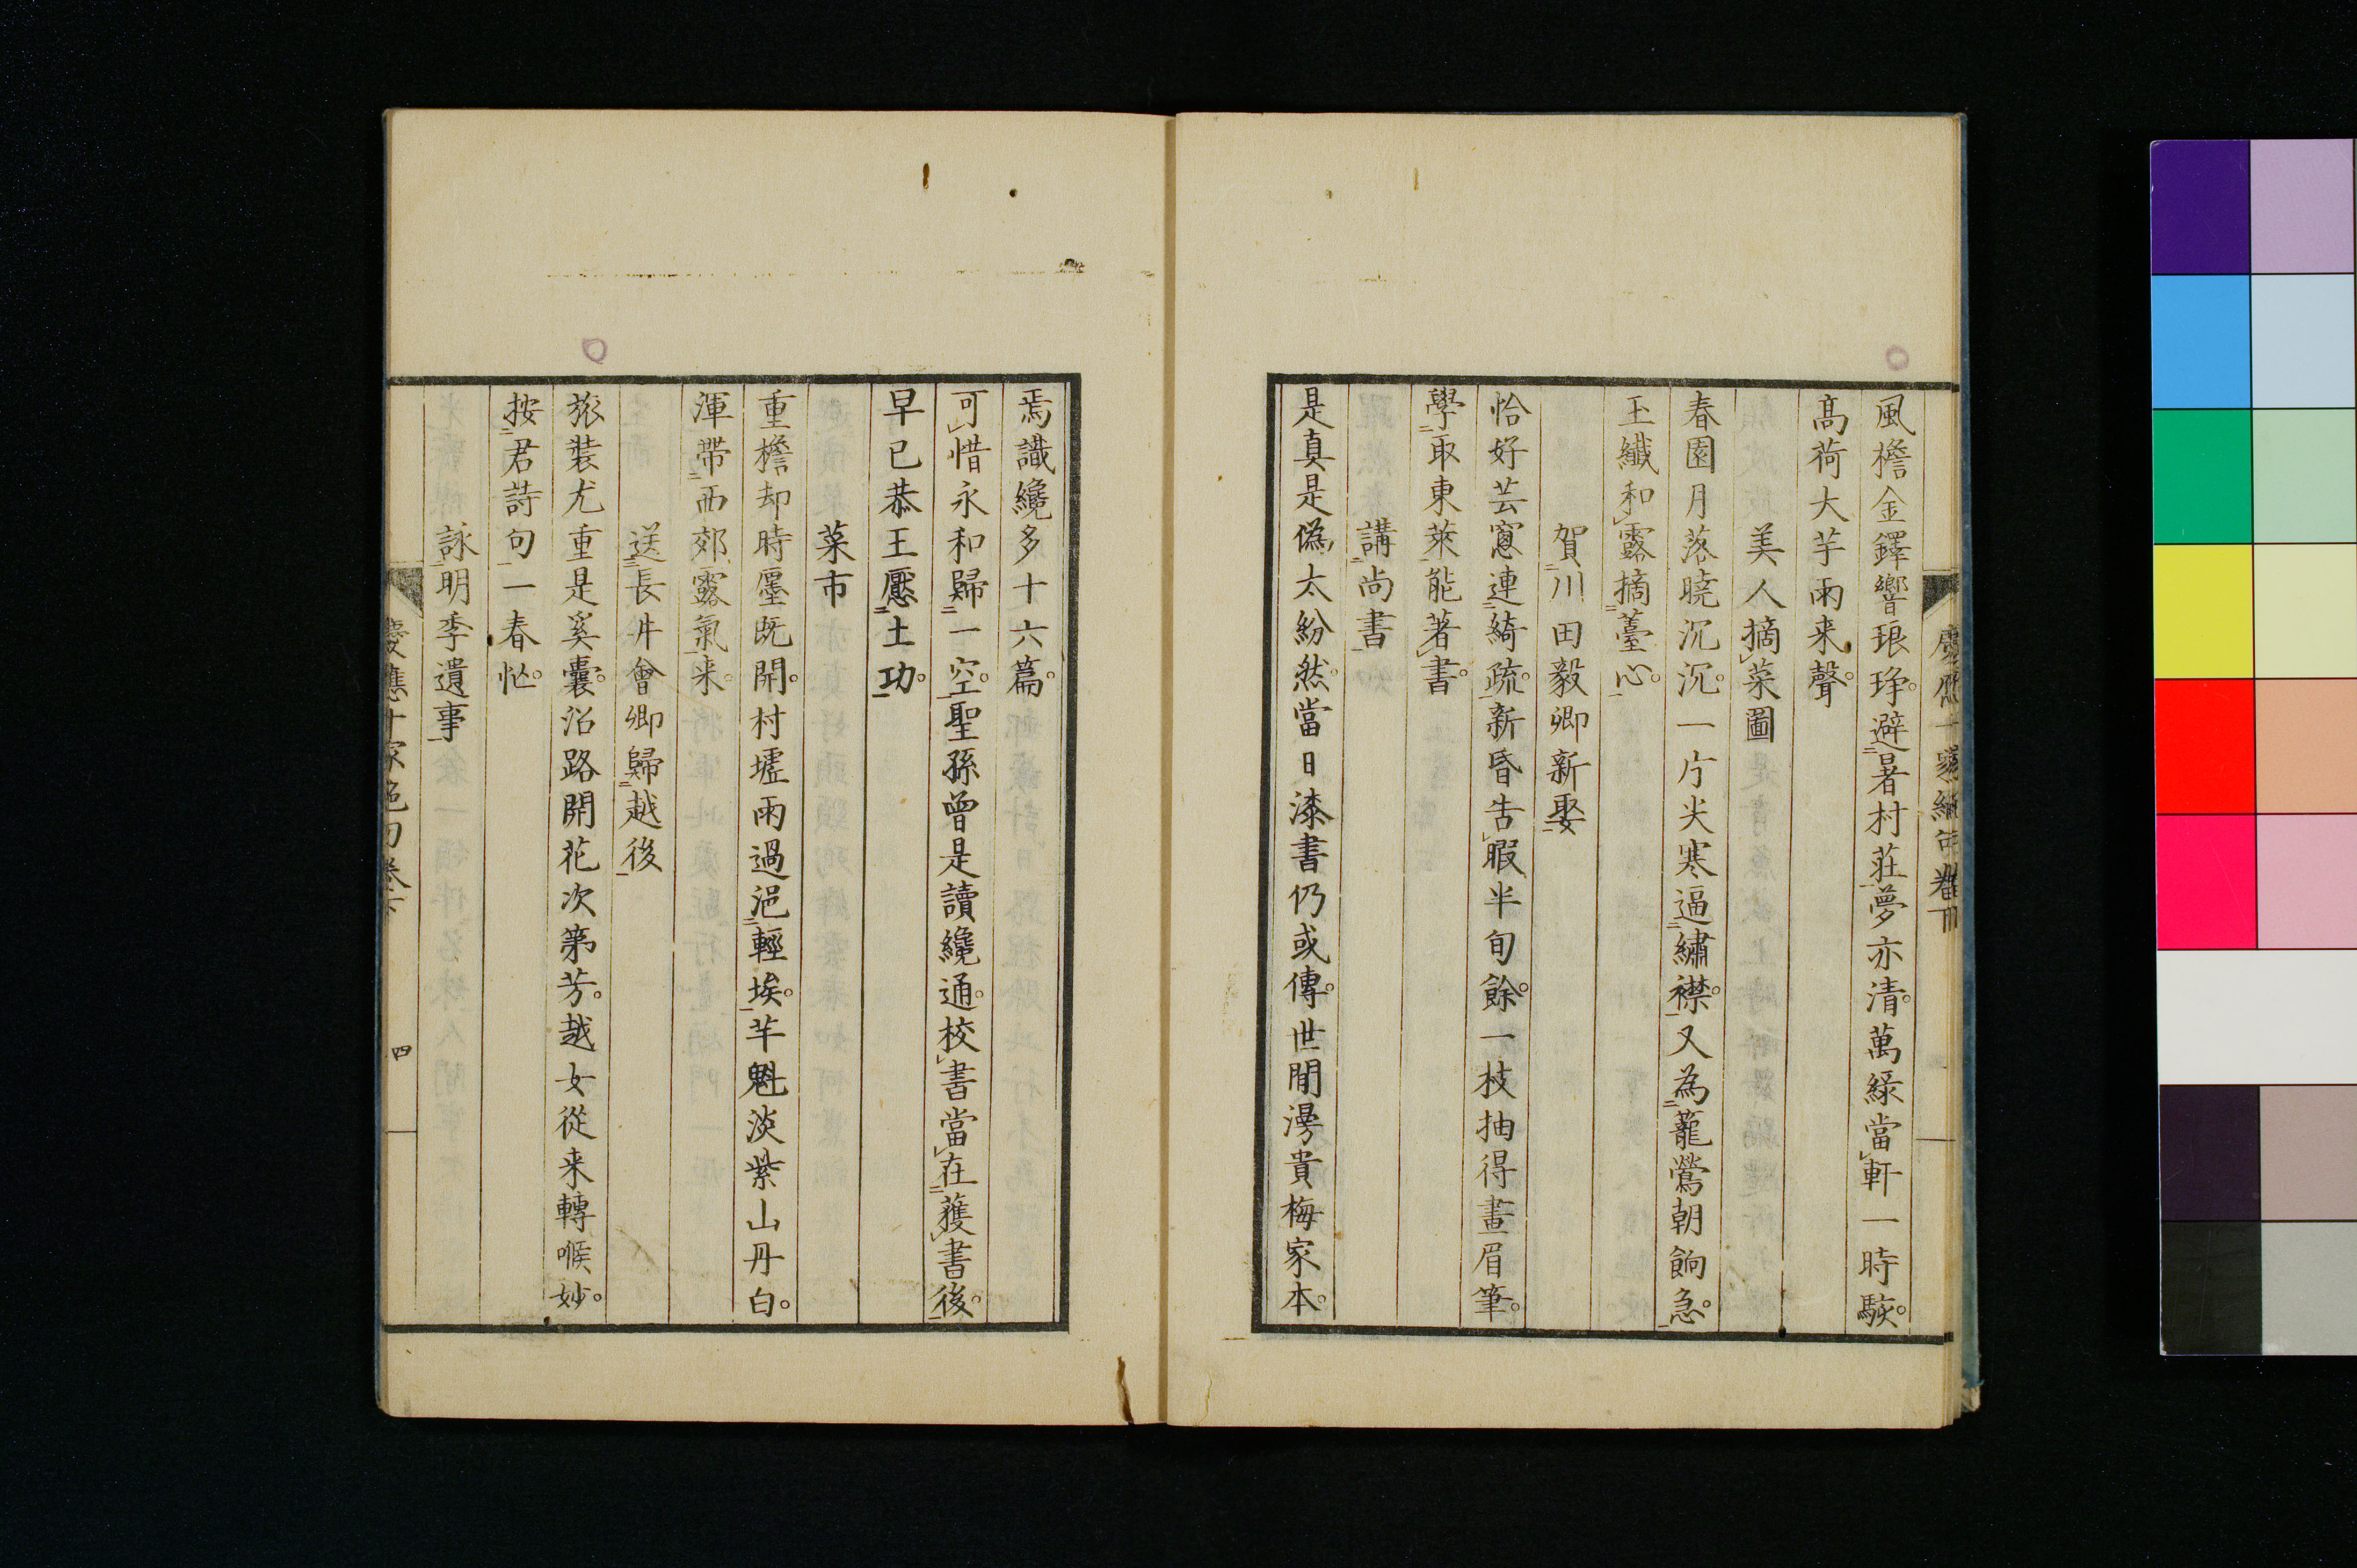 風檐金鐸響琅琤。避暑村莊夢亦清。萬綠當軒一時駭。
高荷大芋雨来聲。
美人摘菜圖
春園月落曉沉沉。一片尖寒逼繡襟。又為籠鶯朝餉急。
玉纖和露摘薹心。
賀川田毅卿新娶
恰好芸窻連綺疏。新昏告暇半旬餘。一枝抽得畫眉筆。
學取東萊能著書。
講尚書
是真是偽太紛然。當日漆書仍或傳。世間漫貴梅家本。
焉識纔多十六篇。
可惜永和歸一空。聖孫曾是讀纔通。校書當在獲書後。
早已恭王壓土功。
菜市
重檐却時廛既開。村墟雨過浥輕埃。芋魁淡紫山丹白。
渾帶西郊露氣来。
送長井會卿歸越後
旅裝尤重是奚囊。沿路開花次第芳。越女從来轉喉妙。
按君詩句一春忙。
詠明季遺事
慶應十家絕句卷下
四